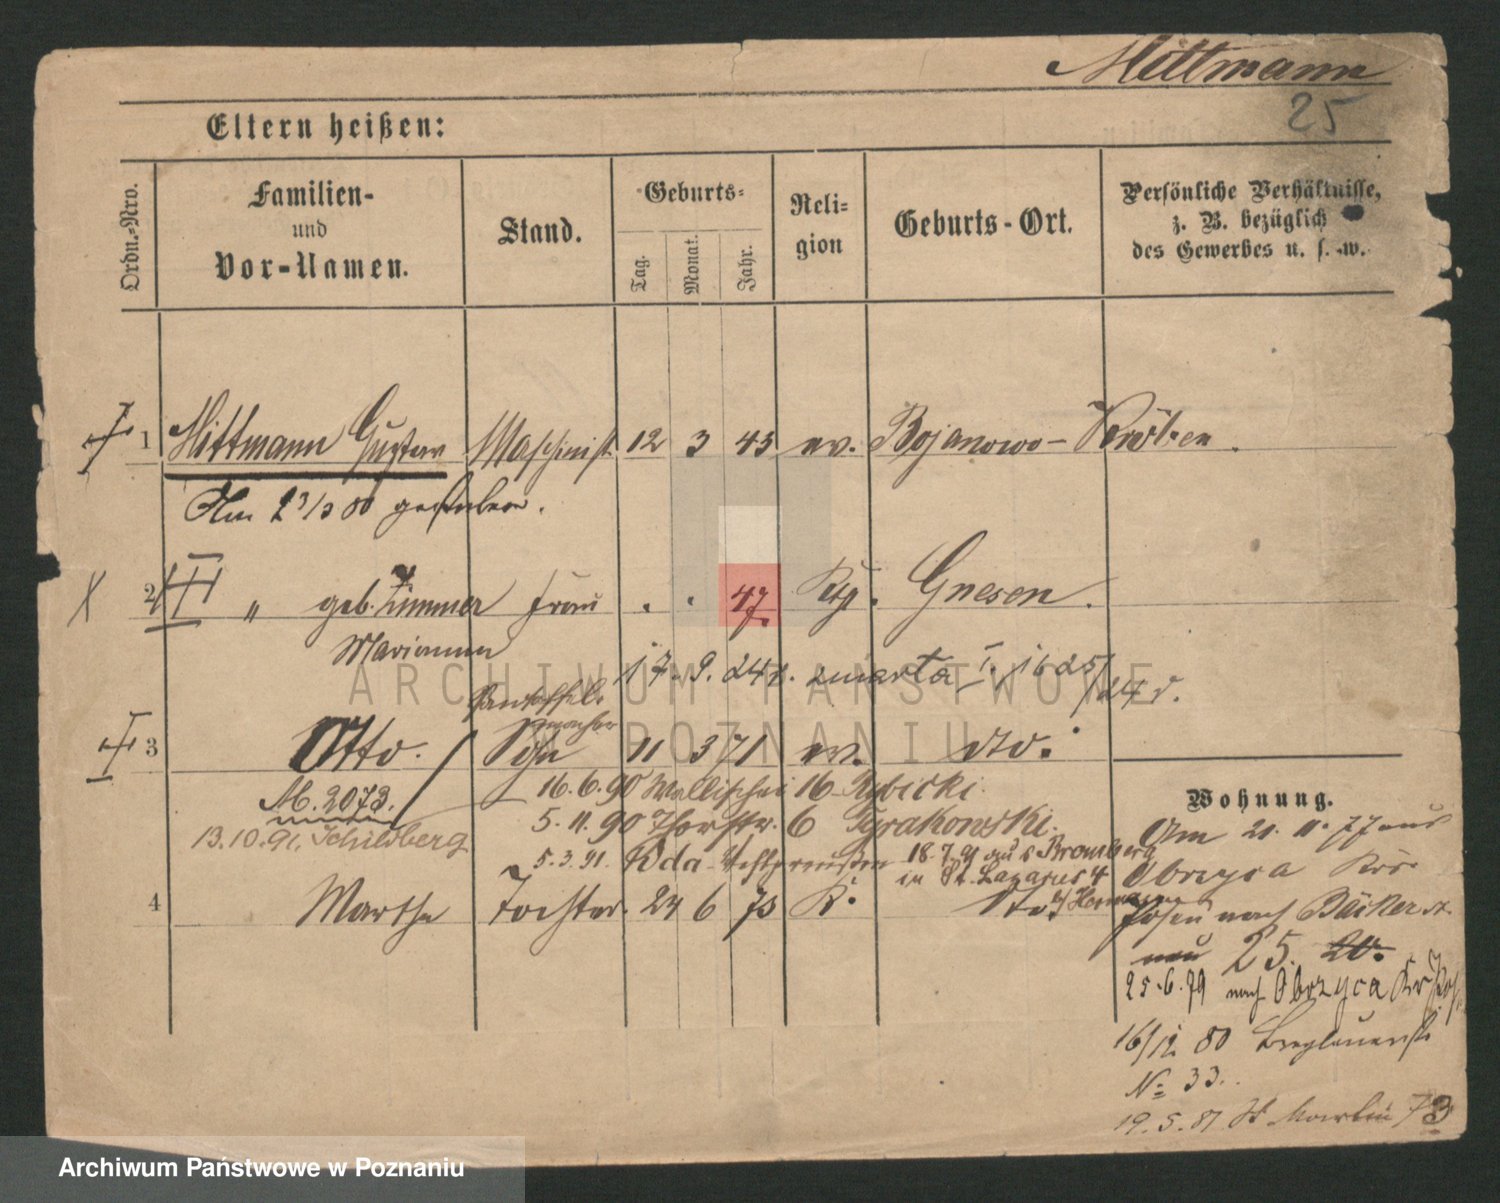 Mittmann
25
Eltern heißen:
Ordn.-Nro.
Familien-
und
Vor-Namen.
Stand.
Geburts-
Tag.
Monat.
Jahr.
Reli-
gion
Geburts-Ort.
Persönliche Verhältnisse,
z. B. bezüglich
des Gewerbes u. s. w.
I 1 Mittmann Gustav Maschinist 12 3 45 ev. Bojanowo - Kröben.
Am 23/3 80 gestorben.
X 2 III " geb. Zimmer Frau . . 47 Kth. Gnesen.
Marianna
17. 9. 24 r. zmarła I. 1625/24 r.
Pantoffel-
macher
I 3 Otto. Sohn 11 3 71 ev. dto.
16. 6. 90 Wallischei 16 Rybicki.
M. 2073.
5. 11. 90 Thorstr. 6 Tyrakowski.
13. 10. 91. Schildberg
5. 3. 91.
18. 7. 91 aus Bromberg
in St. Lazarus 4
4 Martha Tochter. 24 6 73 K. dto.
Wohnung.
Am 21. 11. 77 aus
Obrzyca Krs.
Posen nach Bäckerstr.
neu 25. 20.
25. 6. 79 nach Obrzyca Kr Pos.
16/12 80
No 33.
19. 5. 81 St Martin 73
ARCHIWUM PAŃSTWOWE
W POZNANIU
Archiwum Państwowe w Poznaniu